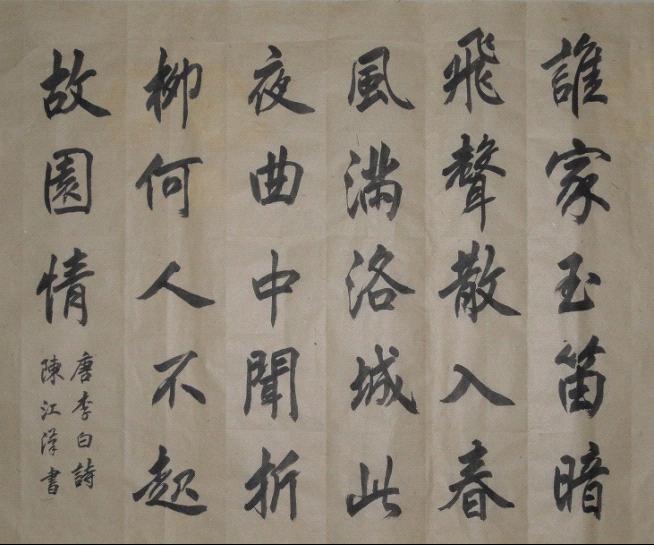 誰家玉笛暗
飛聲散入春
風滿洛城此
夜曲中聞折
柳何人不起
故園情
唐李白詩
陳江漢書